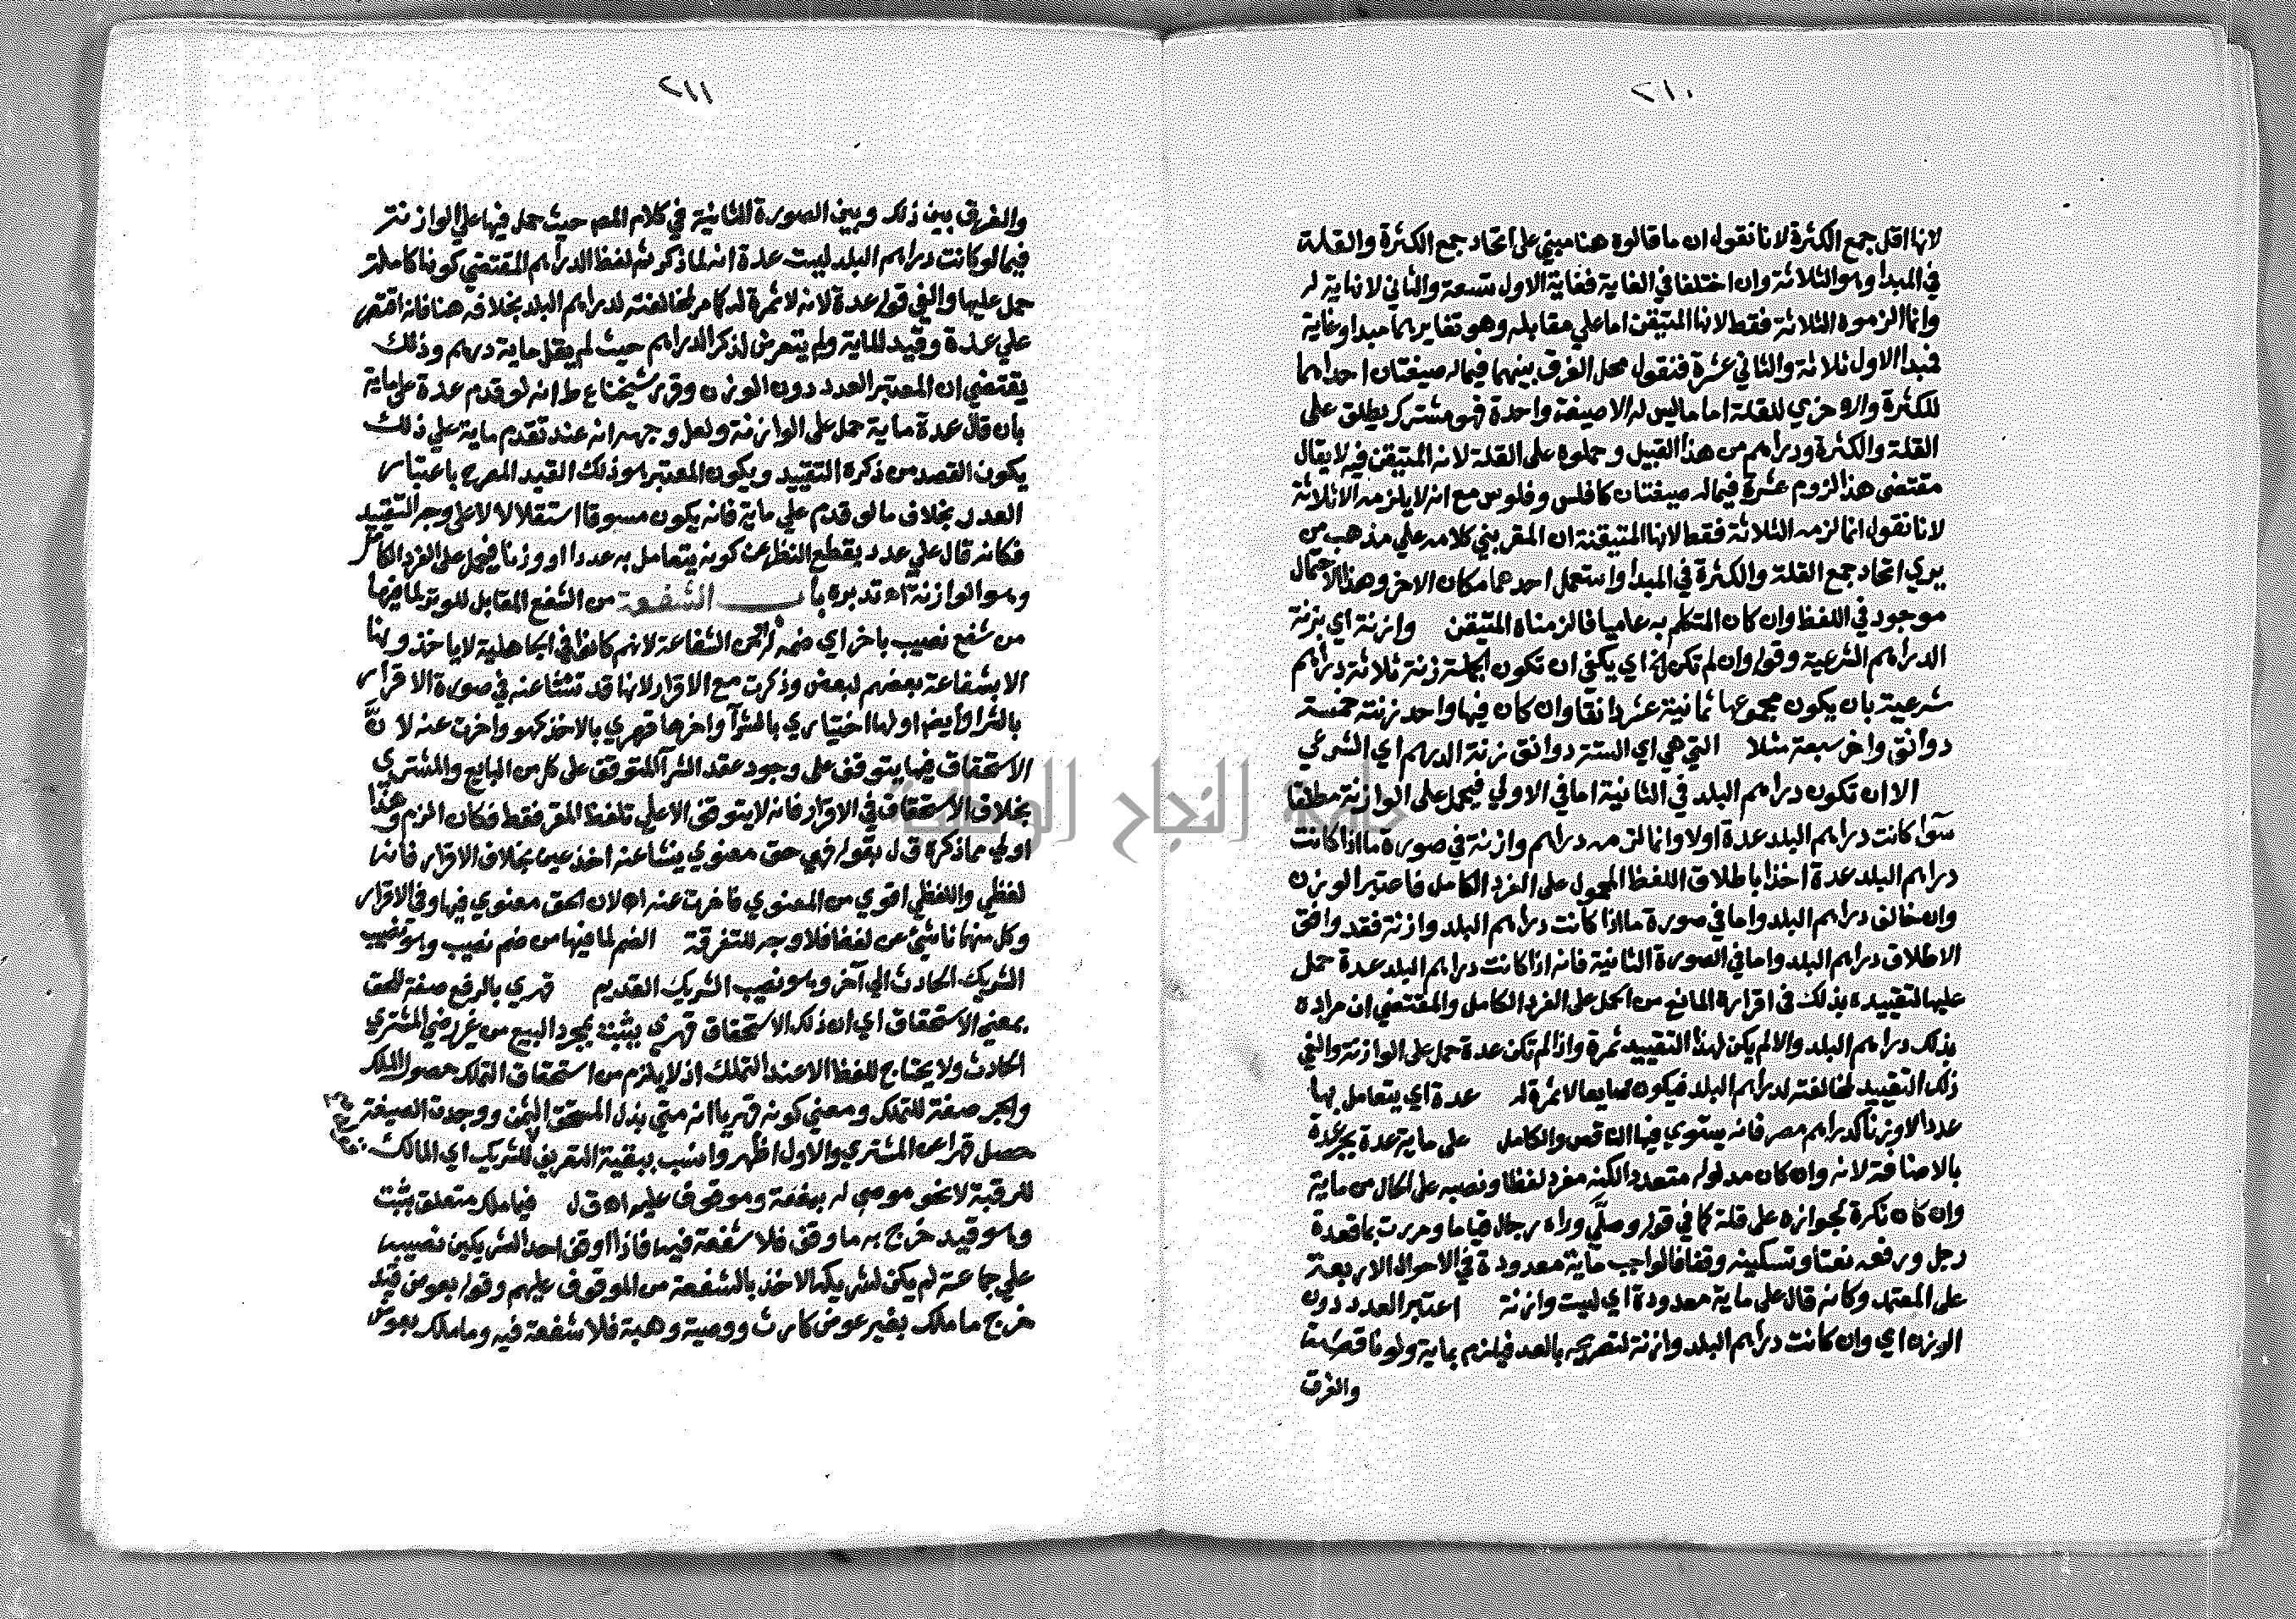 ٢١٠
لانها اقل جمع الكثرة لانا نقول ان ما قالوه هنا مبني على اتحاد جمع الكثرة والقلة
في المبدا وهو الثلاثة وان اختلفا في الغاية فغاية الاول تسعة والثاني لا نهاية له
وانما الزموه الثلاثة فقط لانها المتيقن اما على مقابله وهو تغايرهما مبدا وغاية
فمبدا الاول ثلاثة والثاني عشرة فنقول محل الفرق بينهما فيما له صيغتان احداهما
للكثرة والاخري للقلة اما ما ليس له الا صيغة واحدة فهو مشترك يطلق على
القلة والكثرة ودراهم من هذا القبيل وحملوه على القلة لانه المتيقن فيه لا يقال
مقتضى هذا لزوم عشرة فيما له صيغتان كافلس وفلوس مع انه لا يلزمه الا ثلاثة
لانا نقول انما لزمه الثلاثة فقط لانها المتيقنة ان المقر بني كلامه علي مذهب من
يري اتحاد جمع القلة والكثرة في المبدا واستعمل احدهما مكان الاخر وهذا الاحتمال
موجود في اللفظ وان كان المتكلم به عاميا فالزمناه المتيقن وازنة اي بزنة
الدراهم الشرعية وقوله وان لم تكن الخ اي يكفي ان تكون الجملة زنة ثلاثة دراهم
شرعية بان يكون مجموعها ثمانية عشر دانقا وان كان فيها واحد زنته خمسة
دوانق واخر سبعة مثلا التي هي اي الستة دوانق زنة الدرهم اي الشرعي
الا ان تكون دراهم البلد في الثانية اما في الاولي فيحمل على الوازنة مطلقا
سوآ كانت دراهم البلد عدة اولا وانما لزمه دراهم وازنة في صورة ما اذا كانت
دراهم البلد عدة اخذا باطلاق اللفظ المحمول على الفرد الكامل فاعتبر الوزن
وان خالف دراهم البلد واما في صورة ما اذا كانت دراهم البلد وازنة فقد وافق
الاطلاق دراهم البلد واما في الصورة الثانية فانه اذا كانت دراهم البلد عدة حمل
عليها لتقييده بذلك في اقراره المانع من الحمل على الفرد الكامل والمقتضي ان مراده
بذلك دراهم البلد والا لم يكن لهذا التقييد ثمرة واذا لم تكن عدة حمل على الوازنة والغي
ذلك التقييد لمخالفته لدراهم البلد فيكون ضايعا لا ثمرة له عدة اي يتعامل بها
عددا لا وزنا كدراهم مصر فانه يستوي فيها الناقص والكامل على ماية عدة بجر عدة
بالاضافة لانه وان كان مدلوله متعددا لكنه مفرد لفظا ونصبه على الحال من ماية
وان كان نكرة لجوازه على قلة كما في قوله وصلّي وراه رجال قياما ومررت بما قعدة
رجل ورفعه نعتا وتسكينه وقفا فالواجب ماية معدودة في الاحوال الاربعة
على المعتمد وكانه قال على ماية معدودة اي ليست وازنة اعتبر العدد دون
الوزن اي وان كانت دراهم البلد وازنة لتصريحه بالعد فيلزم بماية ولو ناقصة
والفرق
٢١١
والفرق بين ذلك وبين الصورة الثانية في كلام المص حيث حمل فيها علي الوازنة
فيما لو كانت دراهم البلد ليست عدة انه لما ذكر ثم لفظ الدراهم المقتضي كونها كاملة
حمل عليها والغي قوله عدة لانه لا ثمرة له كما مر لمخالفته لدراهم البلد بخلافه هنا فانه اقتصر
علي عدة وقيد للماية ولم يتعرض لذكر الدراهم حيث لم يقل ماية درهم وذلك
يقتضي ان المعتبر العدد دون الوزن وقرر شيخنا ع ط انه لو قدم عدة على ماية
بان قال عدة ماية حمل على الوازنة ولعل وجهه انه عند تقدم ماية علي ذلك
يكون القصد من ذكره التقييد ويكون المعتبر هو ذلك القيد المصرح باعتبار
العدد بخلاف ما لو قدم علي ماية فانه يكون مسوقا استقلالا لا على وجه التقييد
فكانه قال علي عدد بقطع النظر عن كونه يتعامل به عددا او وزنا فيحمل على الفرد الكامل
وهو الوازنة اه تدبره باب الشفعة من الشفع المقابل للوتر لما فيها
من شفع نصيب باخر اي ضمه له او من الشفاعة لانهم كانوا في الجاهلية لا ياخذونها
الا بشفاعة بعضهم لبعض وذكرت مع الاقرار لانها قد تنشا عنه في صورة الاقرار
بالشرا وأيضا اولها اختياري بالشرآ واخرها قهري بالاخذ كهو واخرت عنه لانَّ
الاستحقاق فيها يتوقف على وجود عقد الشرآ المتوقف على كل من البايع والمشتري
بخلاف الاستحقاق في الاقرار فانه لا يتوقف الا علي تلفظ المقر فقط فكان الزم وهذا
اولي مما ذكره ق ل بقوله فهي حق معنوي ينشا عنه اخذ عين بخلاف الاقرار فانه
لفظي واللفظي اقوي من المعنوي فاخرت عنه اه لان الحق معنوي فيها وفي الاقرار
وكل منهما ناشئ عن لفظ فلا وجه للتفرقة الضم لما فيها من ضم نصيب وهو نصيب
الشريك الحادث الي آخر وهو نصيب الشريك القديم قهري بالرفع صفة لحق
بمعني الاستحقاق اي ان ذلك الاستحقاق قهري يثبت بمجرد البيع من غير رضي المشتري
الحادث ولا يحتاج للفظ الا عند التملك اذ لا يلزم من استحقاق التملك حصول الملك
والجر صفة للتملك ومعني كونه قهريا انه متي بذل المستحق الثمن ووجدت الصيغة
حصل قهرا عن المشتري والاول اظهر وانسب ببقية التعريف للشريك اي المالك
للرقبة لا نحو موصي له بمنفعة وموقوف عليه اه ق ل فيما ملك متعلق بثبت
وهو قيد خرج به ما وقف فلا شفعة فيه فاذا اوقف احد الشريكين نصيبه
علي جماعة لم يكن لشريكه الاخذ بالشفعة من الموقوف عليهم وقوله بعوض قيد
خرج ما ملك بغير عوض كارث ووصية وهبة فلا شفعة فيه وما ملك بعوض
جامعة النجاح الوطنية